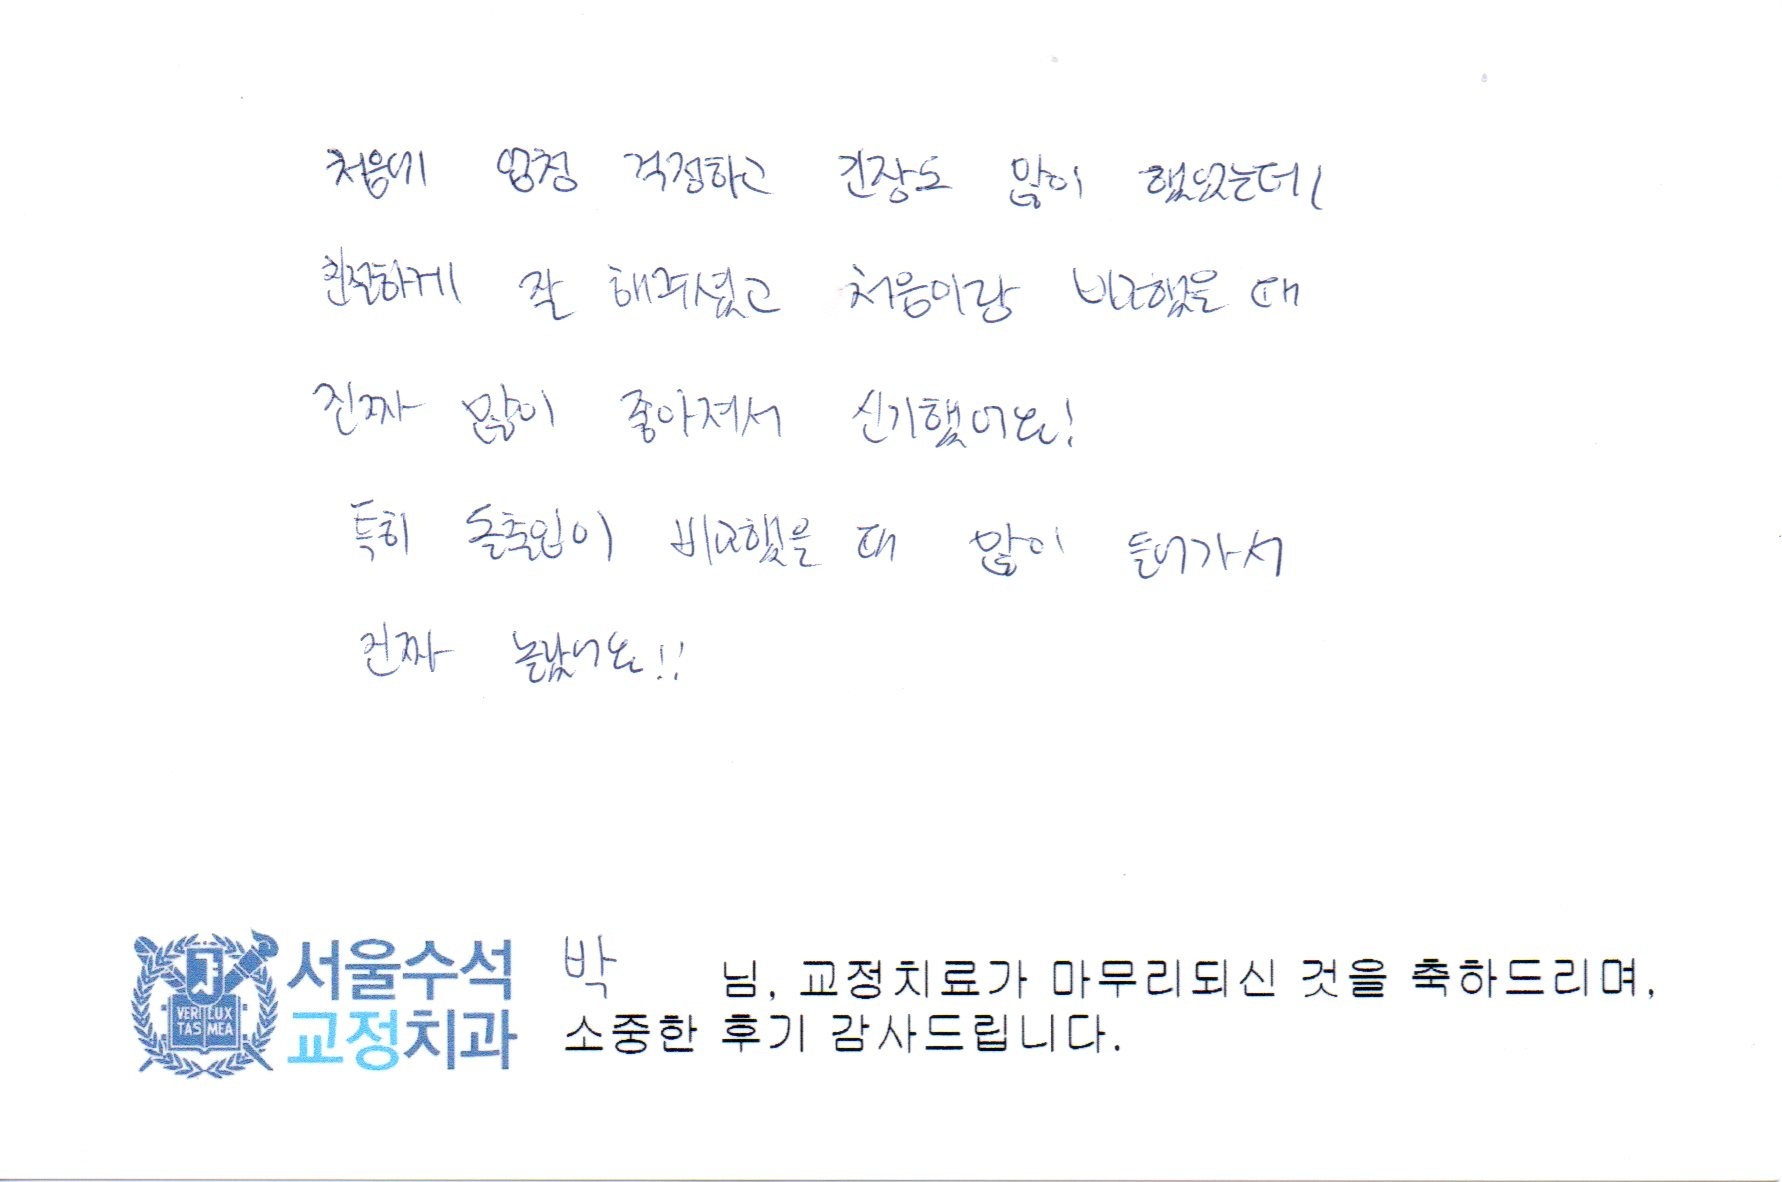 처음에 엄청 걱정하고 긴장도 많이 했었는데
친절하게 잘 해주셨고 처음이랑 비교했을 때
진짜 많이 좋아져서 신기했어요!
특히 돌출입이 비교했을 때 많이 들어가서
진짜 놀랐어요!!
VERI LUX
TAS MEA
서울수석
교정치과
박 님, 교정치료가 마무리되신 것을 축하드리며,
소중한 후기 감사드립니다.